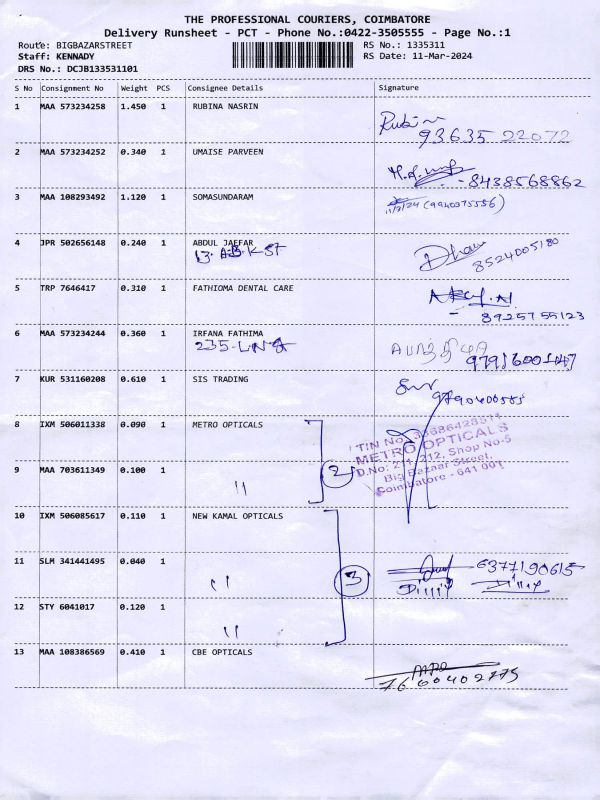 THE PROFESSIONAL COURIERS, COIMBATORE
Delivery Runsheet - PCT - Phone No.:0422-3505555 - Page No.:1
Route: BIGBAZARSTREET RS No.: 1335311
Staff: KENNADY RS Date: 11-Mar-2024
DRS No.: DCJB133531101
S No Consignment No Weight PCS Consignee Details Signature
1 MAA 573234258 1.450 1 RUBINA NASRIN
93635 22072
2 MAA 573234252 0.340 1 UMAISE PARVEEN
8438568862
3 MAA 108293492 1.120 1 SOMASUNDARAM
11/3/24 (9940375556)
4 JPR 502656148 0.240 1 ABDUL JAFFAR
13. A.B.K ST
8524005180
5 TRP 7646417 0.310 1 FATHIOMA DENTAL CARE
8925755123
6 MAA 573234244 0.360 1 IRFANA FATHIMA
235-L.N.
9791600147
7 KUR 531160208 0.610 1 SIS TRADING
9790400555
8 IXM 506011338 0.090 1 METRO OPTICALS
METRO OPTICALS
D.No: 211, 212, Shop No-5
Big Bazaar Street,
Coimbatore - 641 001
9 MAA 703611349 0.100 1 " 2
10 IXM 506085617 0.110 1 NEW KAMAL OPTICALS
11 SLM 341441495 0.040 1 " 3
6377190615
12 STY 6041017 0.120 1 "
13 MAA 108386569 0.410 1 CBE OPTICALS
7660402775